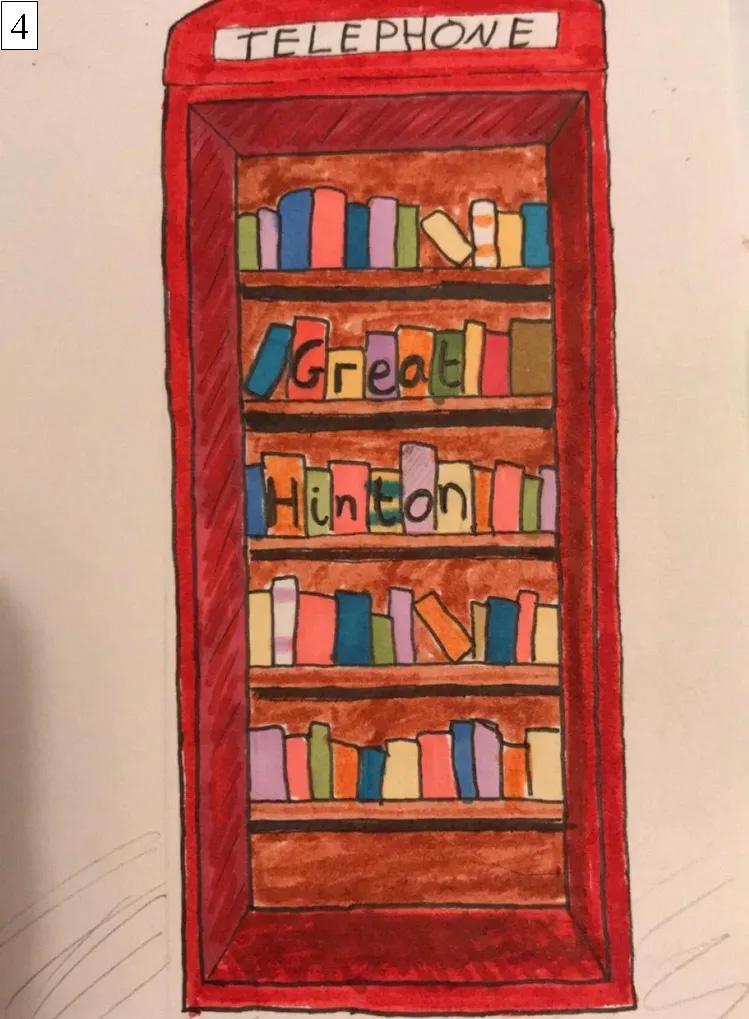 4
TELEPHONE
Great
Hinton